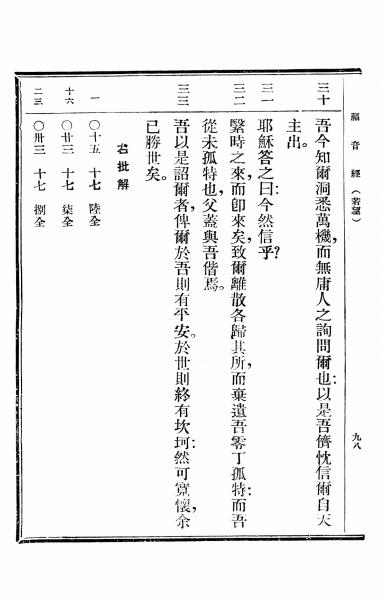 福音經（若望）
九八
三十
吾今知爾洞悉萬機，而無庸人之詢問爾也：以是吾儕忱信爾自天
主出。
三一
耶穌答之曰：今然信乎？
三二
繄時之來，而即來矣，致爾離散各歸其所，而棄遺吾零丁孤特：而吾
從未孤特也，父蓋與吾偕焉。
三三
吾以是詔爾者，俾爾於吾則有平安。於世則終有坎坷：然可寬懷，余
已勝世矣。
右批解
一
〇十五 十七 陸全
十六
〇廿三 十七 柒全
二三
〇卅三 十七 捌全